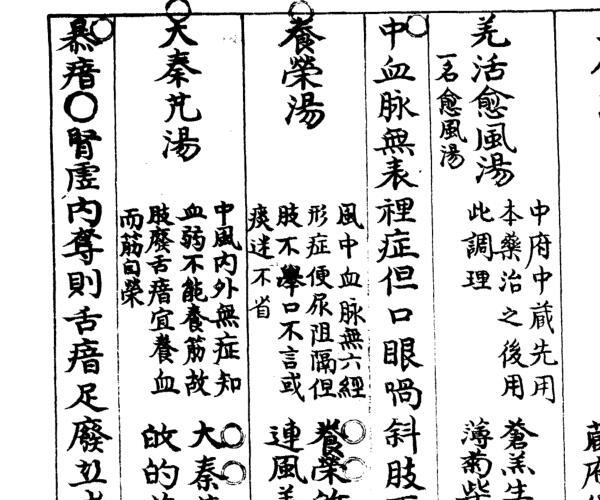 羌活愈風湯
一名愈風湯
中府中蔵先用
本藥治之後用
此調理
蒼羔生
薄菊柴
中血脉無表裡症但口眼喎斜肢
養榮湯
風中血脉無六經
形症便尿阻隔但
肢不擧口不言或
痰迷不省
養榮
連風羔
大秦艽湯
中風内外無症知
血弱不能養筋故
肢廢舌瘖宜養血
而筋自榮
大秦
故的
暴瘖〇腎虛内奪則舌瘖足廢立